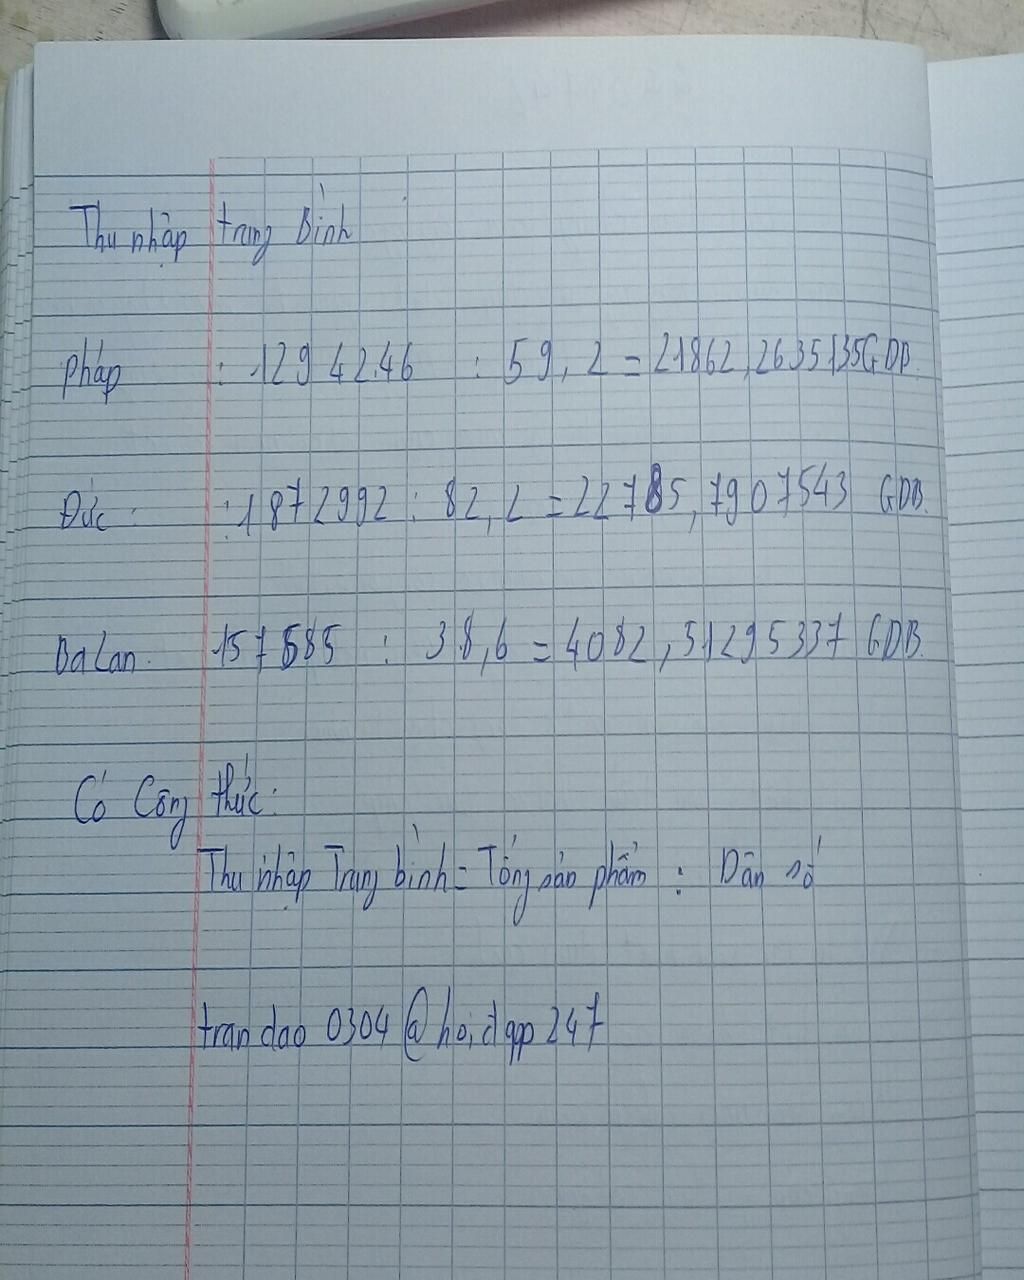 Thu nhập trung Bình
Pháp : 1294246 : 59,2 = 21862,2635135GDB.
Đức : : 1872992 : 82,2 = 22785,7907543 GDB.
Ba Lan. 157585 : 38,6 = 4082,51295337 GDB.
Có Công thức:
Thu nhập Trung bình = Tổng sản phẩm : Dân số
tran dao 0304 @ hoidapp247